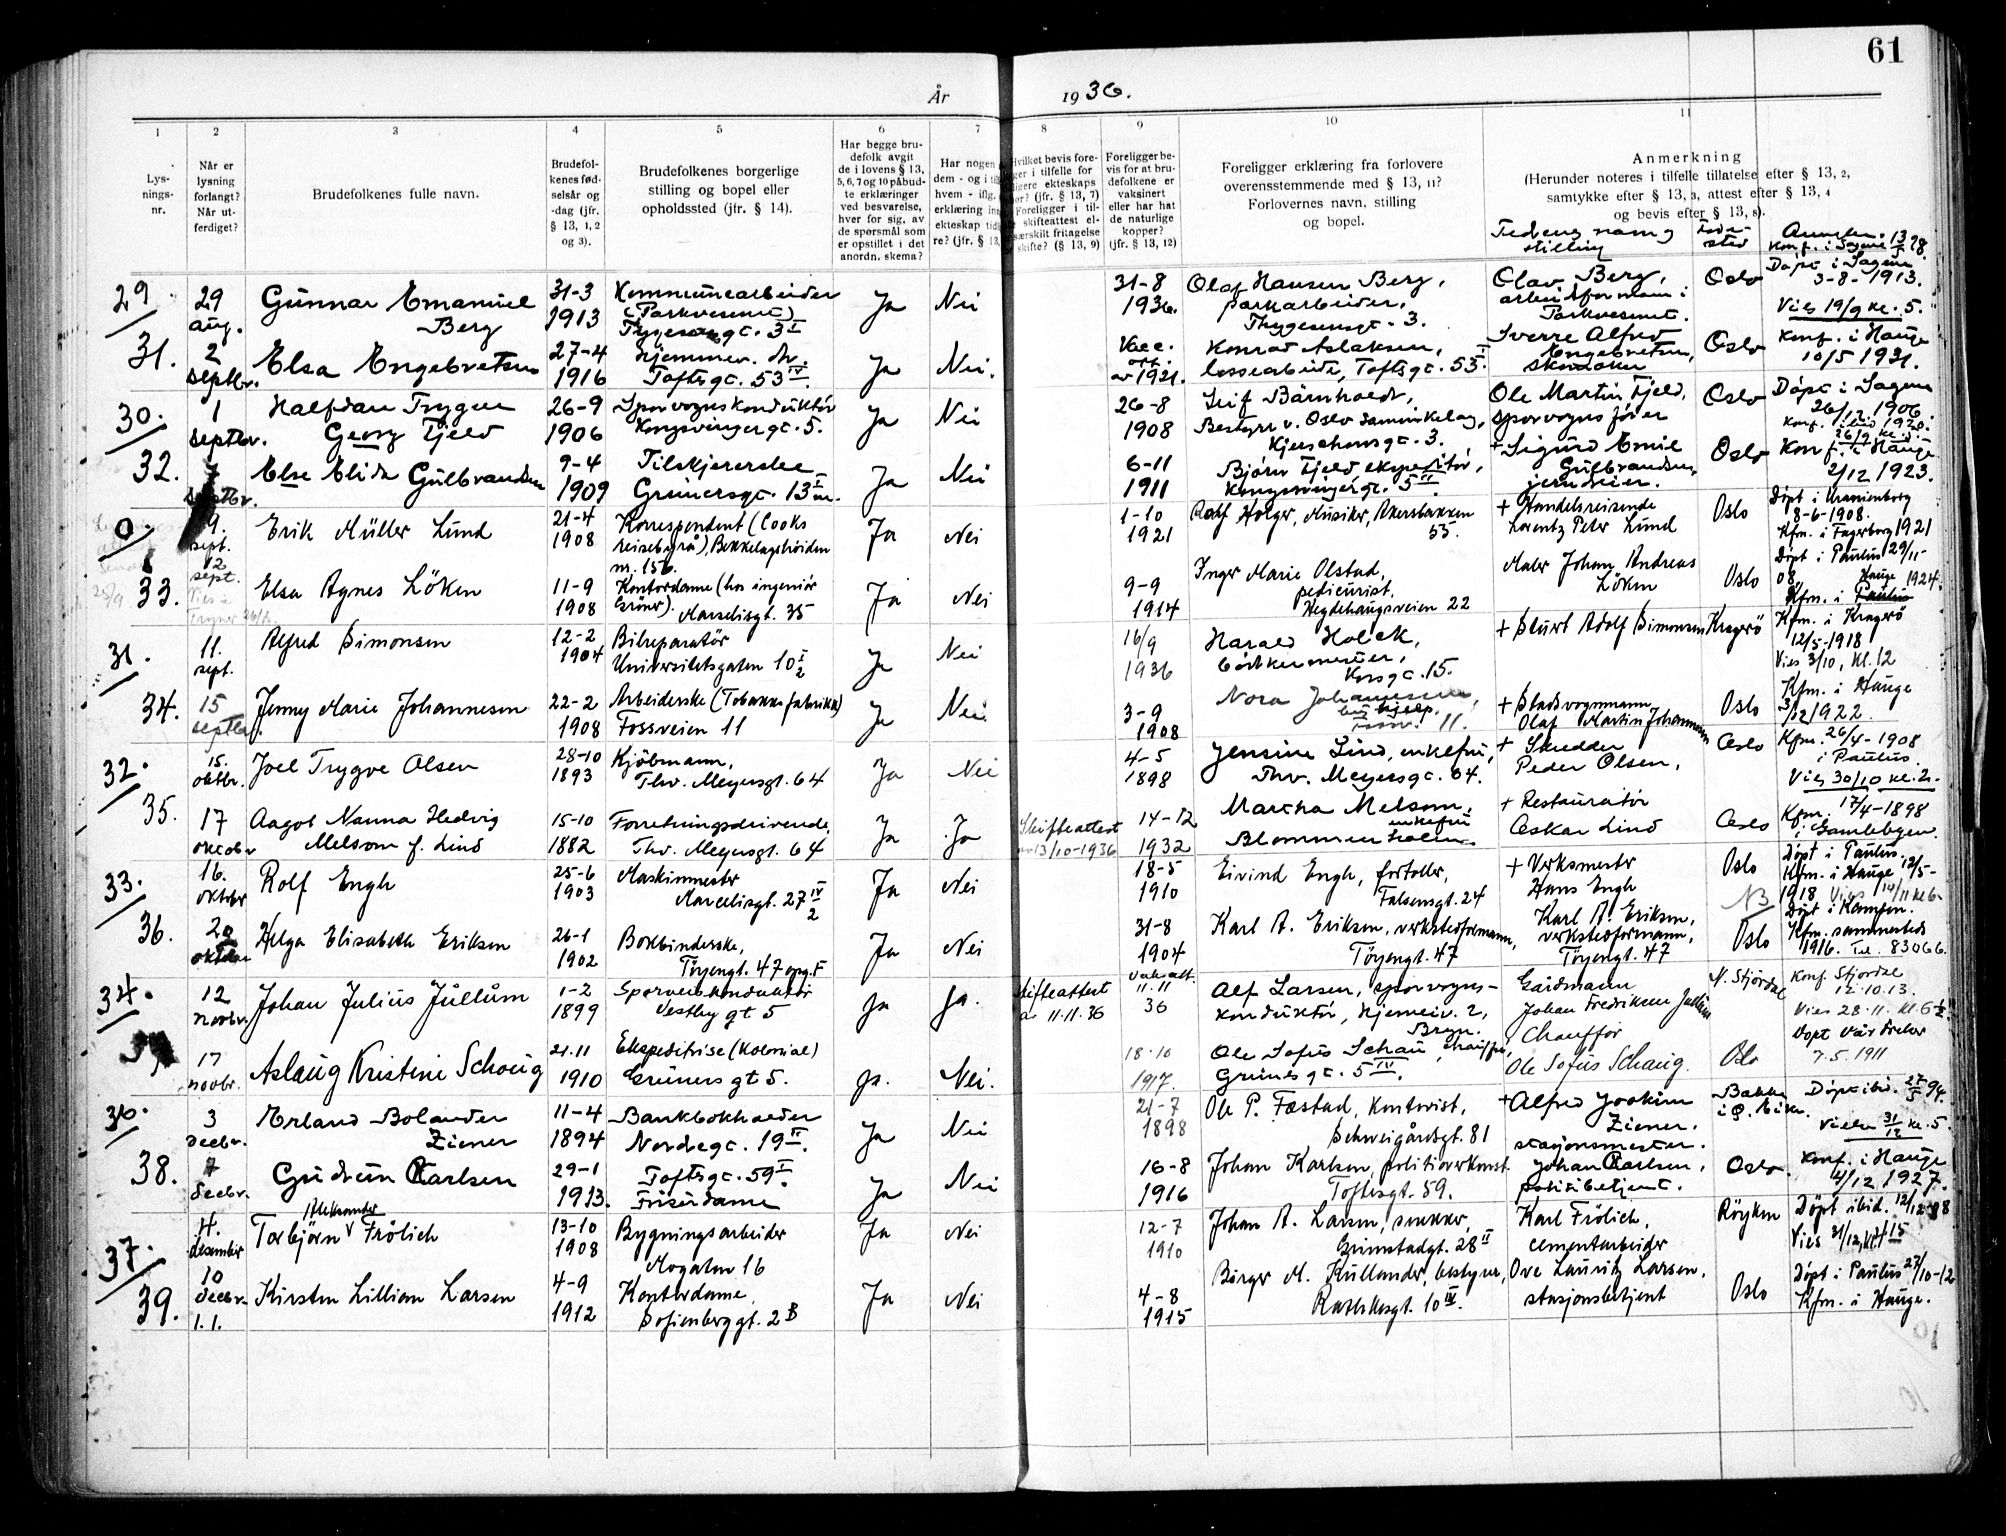 61
År 1936.
1 2 3 4 5 6 7 8 9 10 11
Lys-
nings-
nr.
Når er
lysning
forlangt?
Når ut-
ferdiget?
Brudefolkenes fulle navn.
Brudefol-
kenes fød-
selsår og
-dag (jfr.
§ 13, 1, 2
og 3).
Brudefolkenes borgerlige
stilling og bopel eller
opholdssted (jfr. § 14).
Har begge bru-
defolk avgit
de i lovens § 13,
5, 6, 7 og 10 påbud-
te erklæringer
ved besvarelse,
hver for sig, av
de spørsmål som
er opstillet i det
anordn. skema?
Har nogen
dem - og i til
hvem - iflg.
erklæring in
ekteskap tid
re? (jfr. § 13,
Hvilket bevis fore-
ger i tilfelle for
ligere ekteskaps
or? (jfr. § 13, 7)
Foreligger i til-
skifteattest el-
særskilt fritagelse
skifte? (§ 13, 9)
Foreligger be-
vis for at bru-
defolkene er
vaksinert
eller har hat
de naturlige
kopper?
(jfr. § 13, 12)
Foreligger erklæring fra forlovere
overensstemmende med § 13, 11?
Forlovernes navn, stilling
og bopel.
Anmerkning
(Herunder noteres i tilfelle tillatelse efter § 13, 2,
samtykke efter § 13, 3, attest efter § 13, 4
og bevis efter § 13, 8).
Fedrenes navn og
stilling
Føde-
sted
29 29 Gunnar Emanuel 31-3 Kommunearbeider Ja Nei 31-8 Olaf Hansen Berg, Olav Berg, Oslo Døpt i Sagene
aug. Berg 1913 (Parkvesenet) 1936. parkarbeider, arbeidsformann i 3-8-1913.
Thygesensgt. 3 I Thygesensgt. 3. Parkvesenet. Vies 19/9 kl. 5.
31. 2 Elsa Engebretsen 27-4 Hjemmev. dtr. Ja Nei. Vacc. Konrad Aslaksen, Sverre Alfred Oslo Konf. i Hauge
septbr. 1916 Toftesgt. 53 IV. av 1921. lossearbeider, Toftesgt. 53 Engebretsen, 10/5 1931.
30. 1 Halfdan Trygve 26-9 Sporvognskonduktør Ja Nei 26-8 Leif Bårnholdt, Ole Martin Fjeld, Oslo Døpt i Sagene
septbr. Georg Fjeld 1906 Kongsvingergt. 5. 1908 Bestyrer v. Oslo Samvirkelag, sporvognsfører 26/12 1906.
Kjerschowsgt. 3. Konf. ibid 1920.
32. 7 Else Elida Gulbrandsen 9-4 Tilskjærerske Ja Nei 6-11 Bjørn Fjeld ekspeditør, + Sigurd Emil Oslo Konf. i Hauge
septbr. 1909 Grünersgt. 13 1911 Kongsvingergt. 5 II. Gulbrandsen, 2/12 1923.
0. 9. Erik Müller Lund 21-4 Korrespondent (Cooks Ja Nei 1-10 Rolf Holger, Musiker, Akersbakken + Handelsreisende Oslo Døpt i Uranienborg
sept. 1908 reisebyrå) Bekkelagshöiden 1921 55. Lorentz Peter Lund 8-6-1908.
nr. 156. Kfm. i Fagerborg 1921
33. 12 sept. Elsa Agnes Löken 11-9 Kontordame (hos ingeniör Ja Nei 9-9 Inger Marie Olstad, Maler Johan Andreas Oslo Døpt i Paulus 29/11-
1908 Gröner). Marselisgt. 35 1914 pedicurist. Löken 08. Hauge 1924.
Hegdehaugsveien 22 Kfm. i Paulus
31. 11. Alfred Simonsen 12-2 Bilreparatör Ja Nei 16/9 Harald Holck, + Sturt Adolf Simonsen Kragerö Kfm. i Kragerö
sept. 1904 Universitetsgaten 10 I 2 1936 bödkermester, 12/5-1918
Korsgt. 15. Vies 3/10, kl. 12
34. 15 Jenny Marie Johannesen 22-2 Arbeiderske (Tobakksfabrikk) Ja Nei. 3-9 Nora Johannesen, + Stadsvognmann Oslo Kfm. i Hauge
septbr. 1908 Fossveien 11 1908 11. Olaf Martin Johannesen 3/12 1922.
32. 15. Joel Trygve Olsen 28-10 Kjöbmann, Ja Nei 4-5 Jensine Lind, enkefru, + Skredder Oslo Kfm. 26/4-1908
oktbr. 1893 Thv. Meyersgt. 64 1898 Thv. Meyersgt. 64. Peder Olsen, i Paulus.
Vies 30/10 kl. 2.
35. 17 Aagot Nanna Hedvig 15-10 Forretningsdrivende, Ja Ja Skifteattest 14-12 Martha Melsom, + Restauratör Oslo Kfm. 17/4-1898
oktober Melsom f. Lind 1882 Thv. Meyersgt. 64 av 13/10-1936 1932 enkefru Oskar Lind i Gamlebyen.
Blommenholm.
33. 16. Rolf Engh 25-6 Maskinmester Ja Nei 18-5 Eivind Engh, fortoller, + Verksmester Oslo Døpt i Paulus.
oktober 1903 Marcelisgt. 27 IV 2 1910 Falsensgt. 24 Hans Engh NB Kfm. i Hauge 12/5-
1918 Vies 14/11 kl 6-
36. 20 Helga Elisabeth Eriksen 26-1 Bokbinderske, Ja Nei 31-8 Karl A. Eriksen, verkstedformann, Karl A. Eriksen, Oslo Døpt i Kampen.
oktober 1902 Töyengt. 47 opg. F 1904 Töyengt. 47 verkstedformann, Kfm. sammesteds
Töyengt. 47 1916. Tel. 83066.
34. 12 Johan Julius Jullum 1-2 Sporveiskonduktör Ja Ja. Skifteattest Vakatt. Alf Larsen, sporvogns- Gårdmann N. Stjördal Konf. Stjordal
novbr. 1899 Vestbygt 5 av 11.11.36 11.11 36 konduktör, Hjemvei. 2, Johan Fredriksen Jullum 12.10.13.
Bryn. Vies 28.11. kl. 6½
17 Aslaug Kristine Schoug 21.11 Ekspeditrise (Kolonial) Ja. Nei. 18.10 Ole Sofus Schau, chauffør, Chauffør Oslo Döpt Vår Frelser
novbr. 1910 Grüners gt 5. 1917. Grünersgt. 5 IV. Ole Sofus Schaug. 7.5.1911
36. 3 Erland Bolander 11-4 Bankbokholder Ja Nei 21-7 Ole P. Fæstad, Kontorist, + Alfred Joakim Bakke Døpt ibid. 27/5 94.
decbr. Ziener 1894 Nordregt. 19 II. 1898 Schweigårdsgt. 81 Ziener, Vies 31/12 kl. 5.
stasjonsmester.
38. 7 Gudrun Karlsen 29-1 Toftesgt. 59 I. Ja Nei 16-8 Johan Karlsen, politioverkonst. Johan Karlsen, Oslo. Konf. i Hauge
decbr. 1913. Frisørdame 1916 Toftesgt. 59. politibetjent. 4/12 1927.
37. 4. Torbjörn Aleksander Frölich 13-10 Bygningsarbeider Ja Nei 12-7 Johan A. Larsen, snekker, Karl Frölich, Röyken Döpt ibid. 12/12-08
desember 1908 Mogaten 16 1910 Grimstadgt. 28 II cementarbeider Vies 31/12, kl. 4 15
39. 10 Kirsten Lillian Larsen 4-9 Kontordame, Ja Nei 4-8 Birger M. Kullander, bestyrer, Ove Lauritz Larsen, Oslo Döpt i Paulus 27/10-12
decbr. 1912 Sofienberggt. 2B 1915 Rathkesgt. 10 III. stasjonsbetjent Kfm. i Hauge.
1.1.